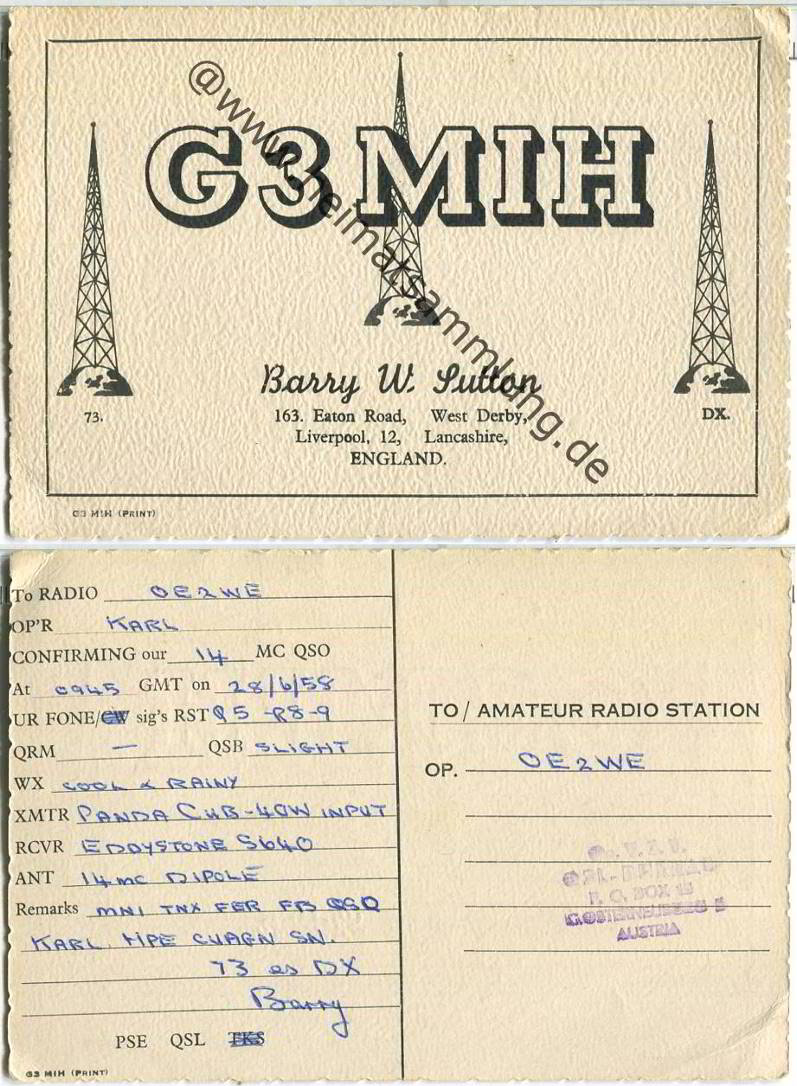 @www.heimatsammlung.de
G3MIH
Barry W. Sutton
163. Eaton Road, West Derby,
Liverpool, 12, Lancashire,
ENGLAND.
73.
DX.
G3 MIH (PRINT)
To RADIO OE2WE
OP'R KARL
CONFIRMING our 14 MC QSO
At 0945 GMT on 28/6/58
UR FONE/CW sig's RST Q5 -R8-9
QRM — QSB SLIGHT
WX COOL & RAINY
XMTR PANDA CUB-40W INPUT
RCVR EDDYSTONE S640
ANT 14MC DIPOLE
Remarks MNI TNX FER FB QSO
KARL. HPE CUAGN SN.
73 es DX
Barry
PSE QSL TKS
G3 MIH (PRINT)
TO / AMATEUR RADIO STATION
OP. OE2WE
P. O. BOX
AUSTRIA